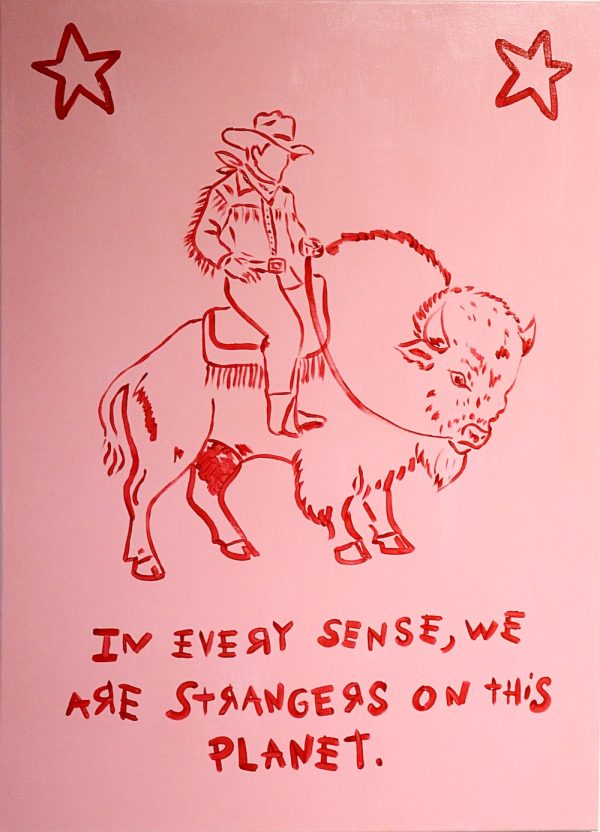 IN EVEЯY SENSE, WE
AЯE STЯANGEЯS ON THiS
PLANET.